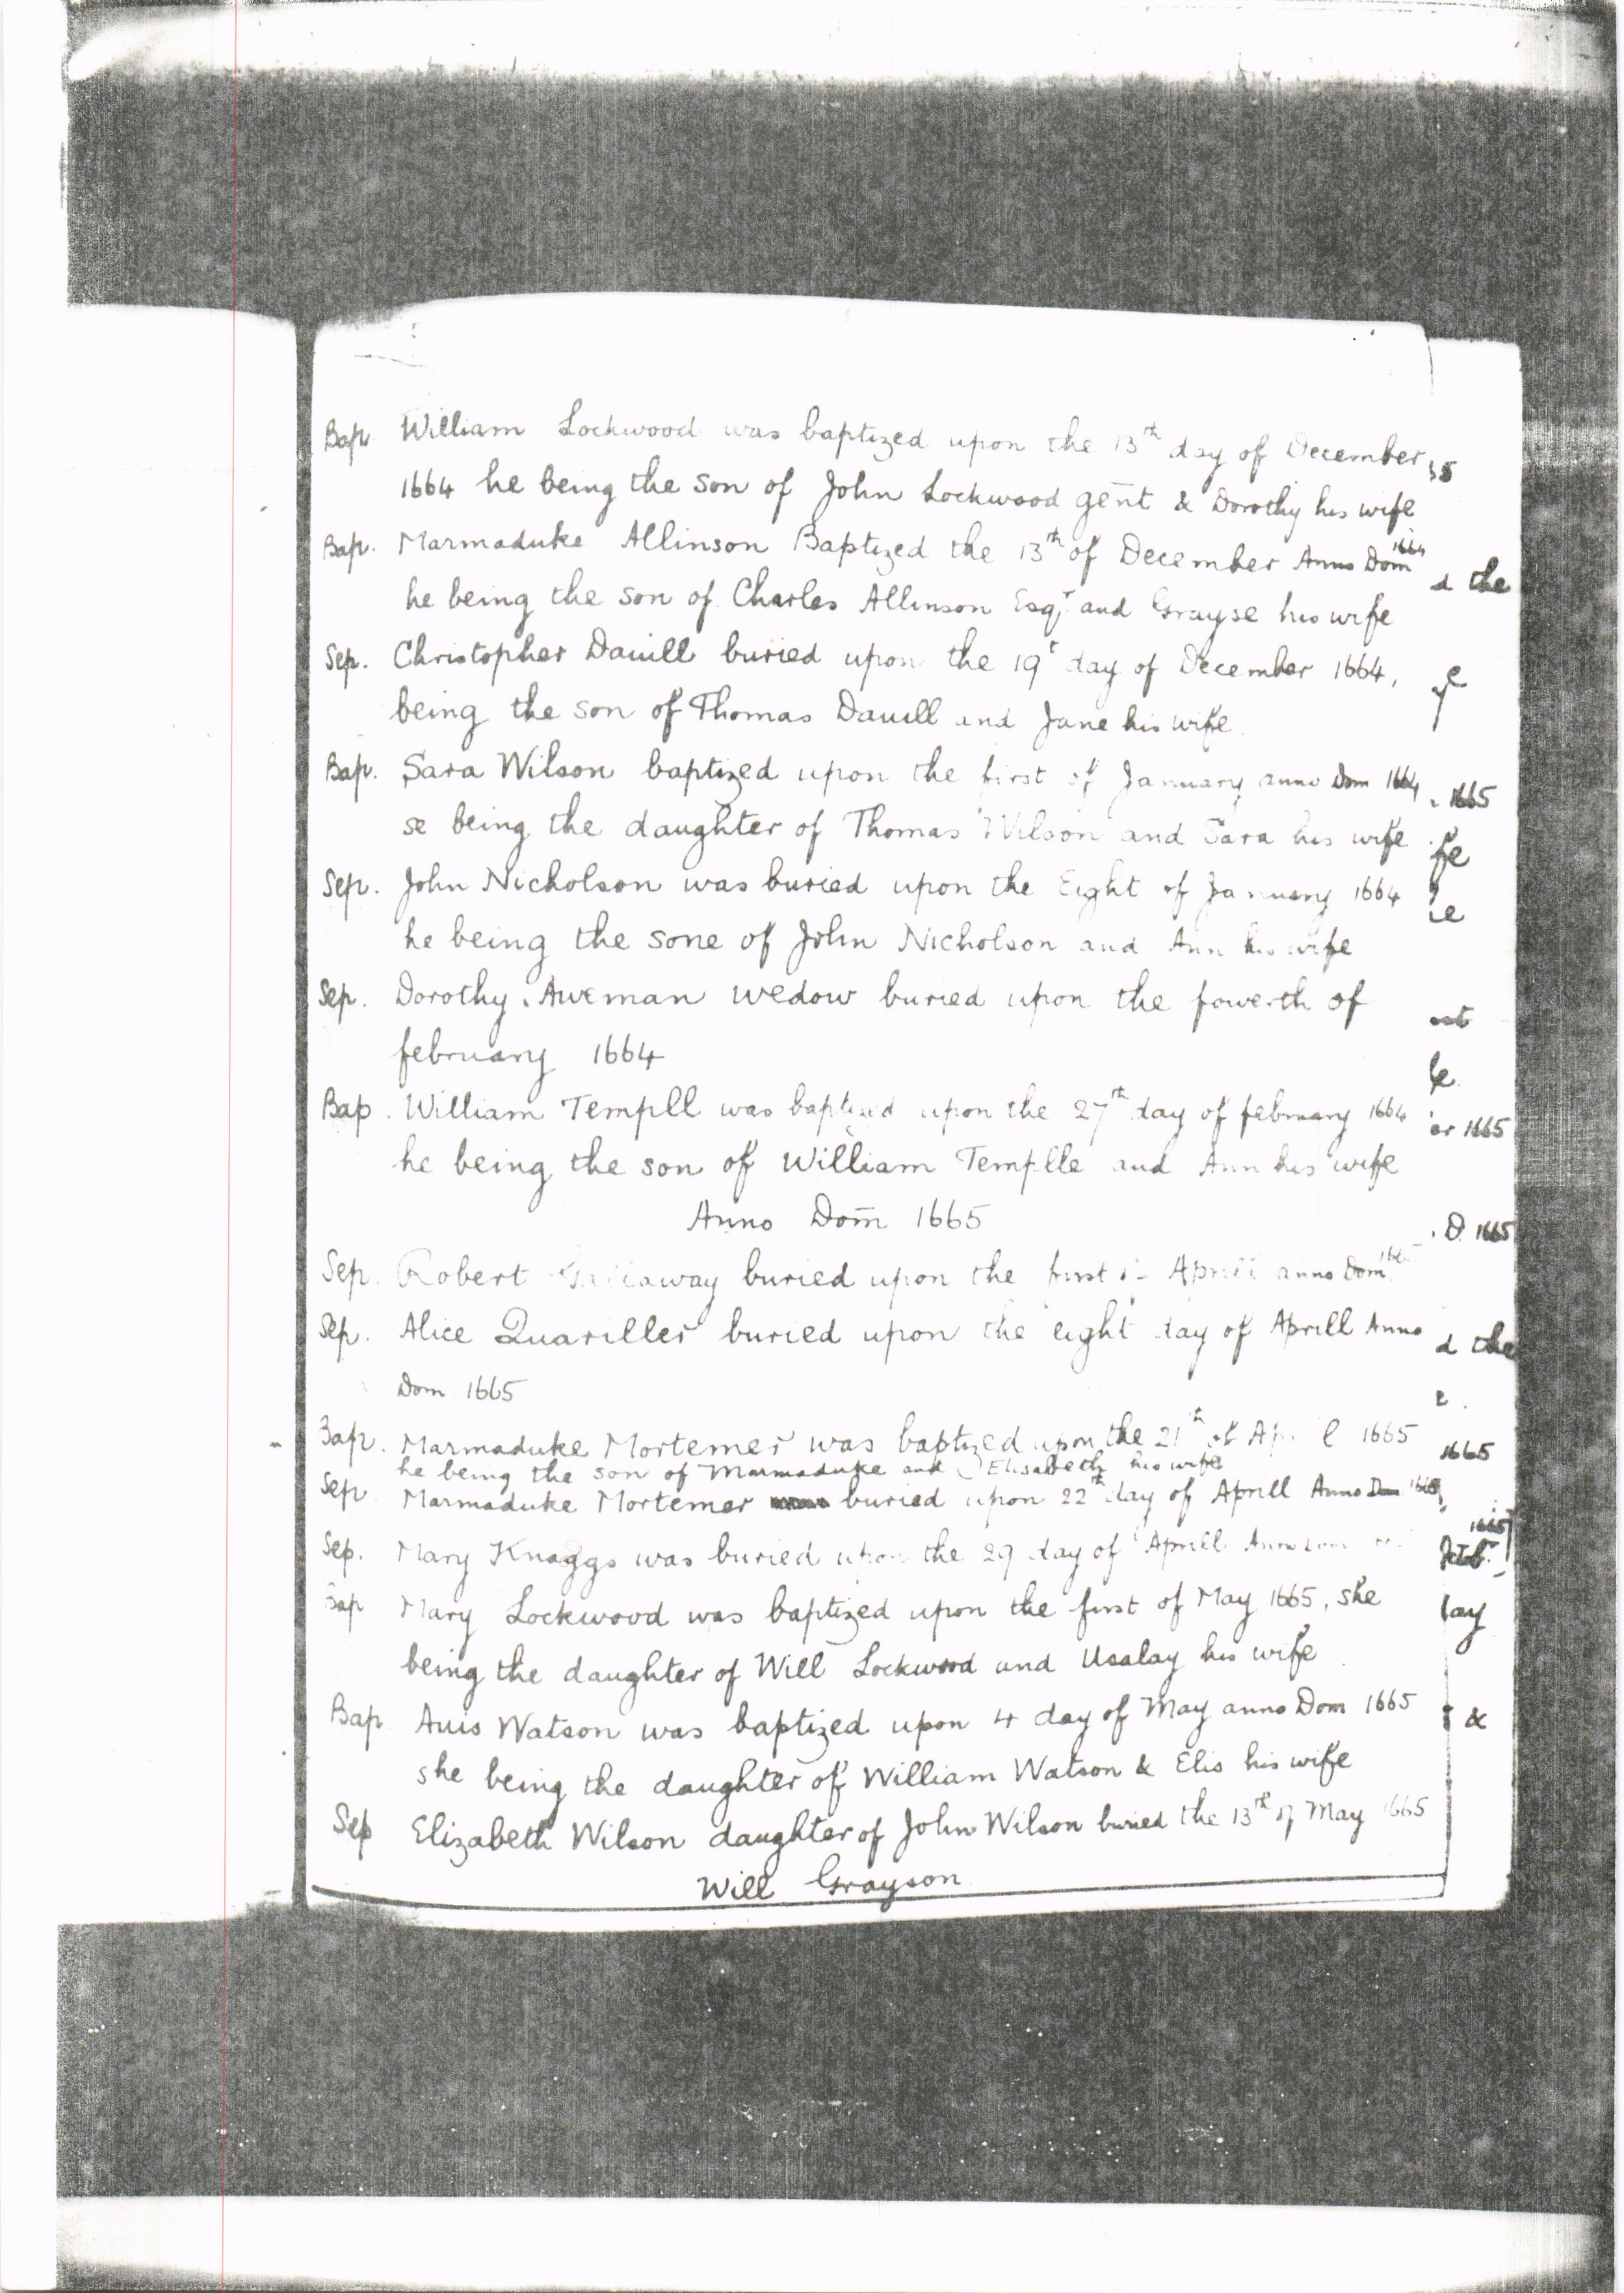 Bap. William Lockwood was baptized upon the 13th day of December
1664 he being the son of John Lockwood gent & Dorothy his wife
Bap. Marmaduke Allinson Baptized the 13th of December Anno Dom 1664
he being the son of Charles Allinson Esqr and Grayse his wife
Sep. Christopher Dauill buried upon the 19t day of December 1664,
being the son of Thomas Dauill and Jane his wife.
Bap. Sara Wilson baptized upon the first of January anno Dom 1664
se being the daughter of Thomas Wilson and Sara his wife
Sep. John Nicholson was buried upon the Eight of January 1664
he being the sone of John Nicholson and Ann his wife
Sep. Dorothy Aweman wedow buried upon the fowerth of
february 1664
Bap. William Templl was baptized upon the 27th day of february 1664
he being the son of William Templle and Ann his wife
Anno Dom̄ 1665
Sep. Robert buried upon the first Aprill anno Dom
Sep. Alice Quariller buried upon the eight day of Aprill Anno
Dom 1665
Bap. Marmaduke Mortemer was baptized upon the 21th of April 1665
he being the son of Marmaduke and Elisabeth his wife
Sep. Marmaduke Mortemer buried upon 22th day of Aprill Anno Dom 1665
Sep. Mary Knaggs was buried upon the 29 day of Aprill Anno Dom
Bap. Mary Lockwood was baptized upon the first of May 1665, she
being the daughter of Will Lockwood and Usalay his wife
Bap. Auis Watson was baptized upon 4 day of May anno Dom 1665
she being the daughter of William Watson & Elis his wife
Sep Elizabeth Wilson daughter of John Wilson buried the 13th of May 1665
Will Grayson
d the
ye
1665
or 1665
D. 1665
d the
1665
1665
&